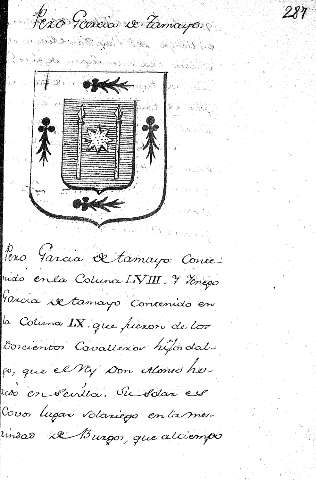 Pero Garcia de Tamayo.
287
Pero Garcia de tamayo Conte-
nido en la Coluna LVIII. Y Yenego
Garcia de tamayo contenido en
la Coluna LX. que fueron de los
Dorcientos Cavalleros hijosdal-
go, que el Rey Don Alonso he-
redó en Sevilla. Su solar es
Covos lugar solariego en la mer-
indad de Burgos, que al tiempo